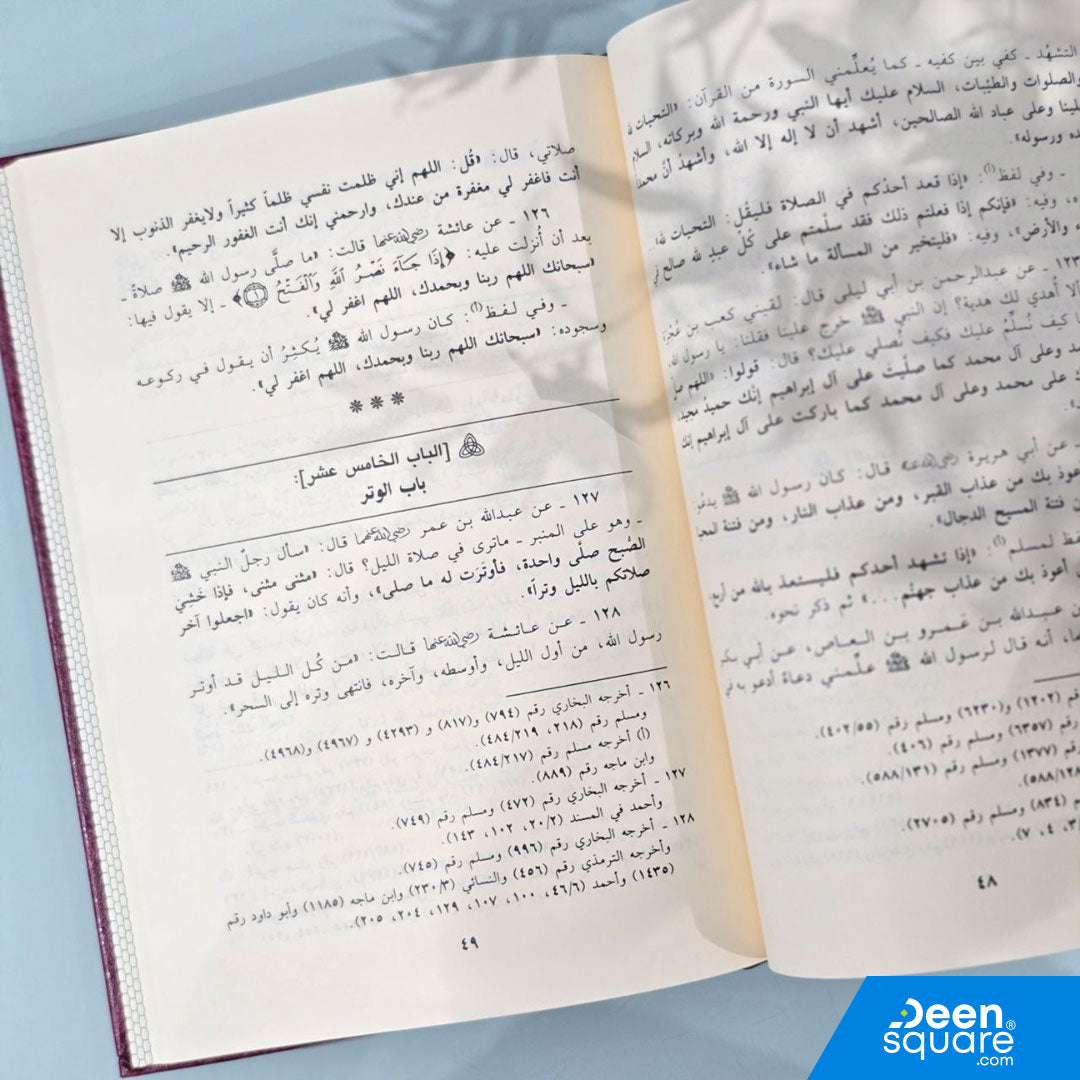 التشهُد ـ كفي بين كفيه ـ كما يُعلِّمني السورة من القرآن: «التحيات لله
والصلوات والطيّبات، السلام عليك أيها النبي ورحمة الله وبركاته، السلام
علينا وعلى عباد الله الصالحين، أشهد أن لا إله إلا الله، وأشهدُ أنَّ محمداً
ورسوله».
ـ وفي لفظ(أ): «إذا قعد أحدُكم في الصلاة فليقُل: التحيات لله
وفيه: «فإنكم إذا فعلتم ذلك فقد سلَّمتم على كُلِّ عبدٍ لله صالح في
والأرض»، وفيه: «فليتخير من المسألة ما شاء».
ـ عن عبدالرحمن بن أبي ليلى قال: لقيني كعب بن عُجْرَة
ألا أُهدي لك هدية؟ إن النبي ﷺ خرج علينا فقلنا: يا رسول الله،
كيف نُسلِّمُ عليك فكيف نُصلي عليك؟ قال: قولوا: «اللهم صل
وعلى آل محمد كما صليْتَ على آل إبراهيم إنَّك حميدٌ مجيد،
على محمد وعلى آل محمد كما باركت على آل إبراهيم إنك
عن أبي هريرة رضي الله عنه قال: كان رسول الله ﷺ يدعو:
أعوذ بك من عذاب القبر، ومن عذاب النار، ومن فتنة المحيا
فتنة المسيح الدجال».
لمسلم(أ): «إذا تشهد أحدكم فليستعذ بالله من أربع
أعوذ بك من عذاب جهنَّم...» ثم ذكر نحوه.
عبدالله بن عمرو بن العاص، عن أبي بكر
أنه قال لرسول الله ﷺ علِّمني دعاءً أدعو به في
(١٢٠٢) و(٦٢٣٠) ومسلم رقم (٤٠٢/٥٥).
(٦٣٥٧) ومسلم رقم (٤٠٦).
(١٣٧٧) ومسلم رقم (٥٨٨/١٣١)
(٨٣٤) ومسلم رقم (٢٧٠٥).
٤٨
صلاتي، قال: «قُل: اللهم إني ظلمت نفسي ظلماً كثيراً ولايغفر الذنوب إلا
أنت فاغفر لي مغفرة من عندك، وارحمني إنك أنت الغفور الرحيم».
١٢٦ ـ عن عائشة رضي الله عنها قالت: «ما صلَّى رسول الله ﷺ صلاةً ـ
بعد أن أُنزلت عليه: ﴿إِذَا جَآءَ نَصْرُ ٱللَّهِ وَٱلْفَتْحُ ۝١﴾ ـ إلا يقول فيها:
«سبحانك اللهم ربنا وبحمدك، اللهم اغفر لي».
ـ وفي لفظ(أ): كان رسول الله ﷺ يُكثِرُ أن يقول في ركوعه
وسجوده: «سبحانك اللهم ربنا وبحمدك، اللهم اغفر لي».
[الباب الخامس عشر]:
باب الوتر
١٢٧ ـ عن عبدالله بن عمر رضي الله عنهما قال: «سأل رجلٌ النبي ﷺ
ـ وهو على المنبر ـ ماترى في صلاة الليل؟ قال: «مثنى مثنى، فإذا خَشيَ
الصُّبح صلَّى واحدة، فأوتَرَت له ما صلى»، وأنه كان يقول: «اجعلوا آخر
صلاتكم بالليل وتراً».
١٢٨ ـ عن عائشة رضي الله عنها قالت: «من كُل الليل قد أوتر
رسول الله، من أول الليل، وأوسطه، وآخره، فانتهى وتره إلى السحر».
١٢٦ ـ أخرجه البخاري رقم (٧٩٤) و(٨١٧) و (٤٢٩٣) و (٤٩٦٧) و(٤٩٦٨).
ومسلم رقم (٢١٨، ٤٨٤/٢١٩).
(أ) أخرجه مسلم رقم (٤٨٤/٢١٧).
وابن ماجه رقم (٨٨٩).
١٢٧ ـ أخرجه البخاري رقم (٤٧٢) ومسلم رقم (٧٤٩).
وأحمد في المسند (٢٠/٢، ١٠٢، ١٤٣).
١٢٨ ـ أخرجه البخاري رقم (٩٩٦) ومسلم رقم (٧٤٥).
وأخرجه الترمذي رقم (٤٥٦) والنسائي (٢٣٠/٣) وابن ماجه (١١٨٥) وأبو داود رقم
(١٤٣٥) وأحمد (٤٦/٦، ١٠٠، ١٠٧، ١٢٩، ٢٠٤، ٢٠٥).
٤٩
Deen
square®
.com